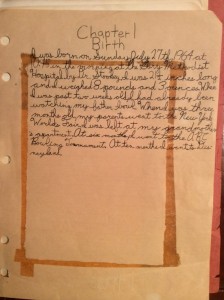 Chapter 1
Birth
I was born on Sunday July 27th 1964 at
in the morning at the
Hospital by Dr. I was 21½ inches long
and I weighed 8 pounds and 3 ounces. When
I was just two weeks old I had already been
watching my father bowl. When I was three
months old, my parents went to the New York
Worlds Fair. I was left at my grandmother's
apartment. At six months I went to the A.B.C.
Bowling Tournament. At ten months I went to